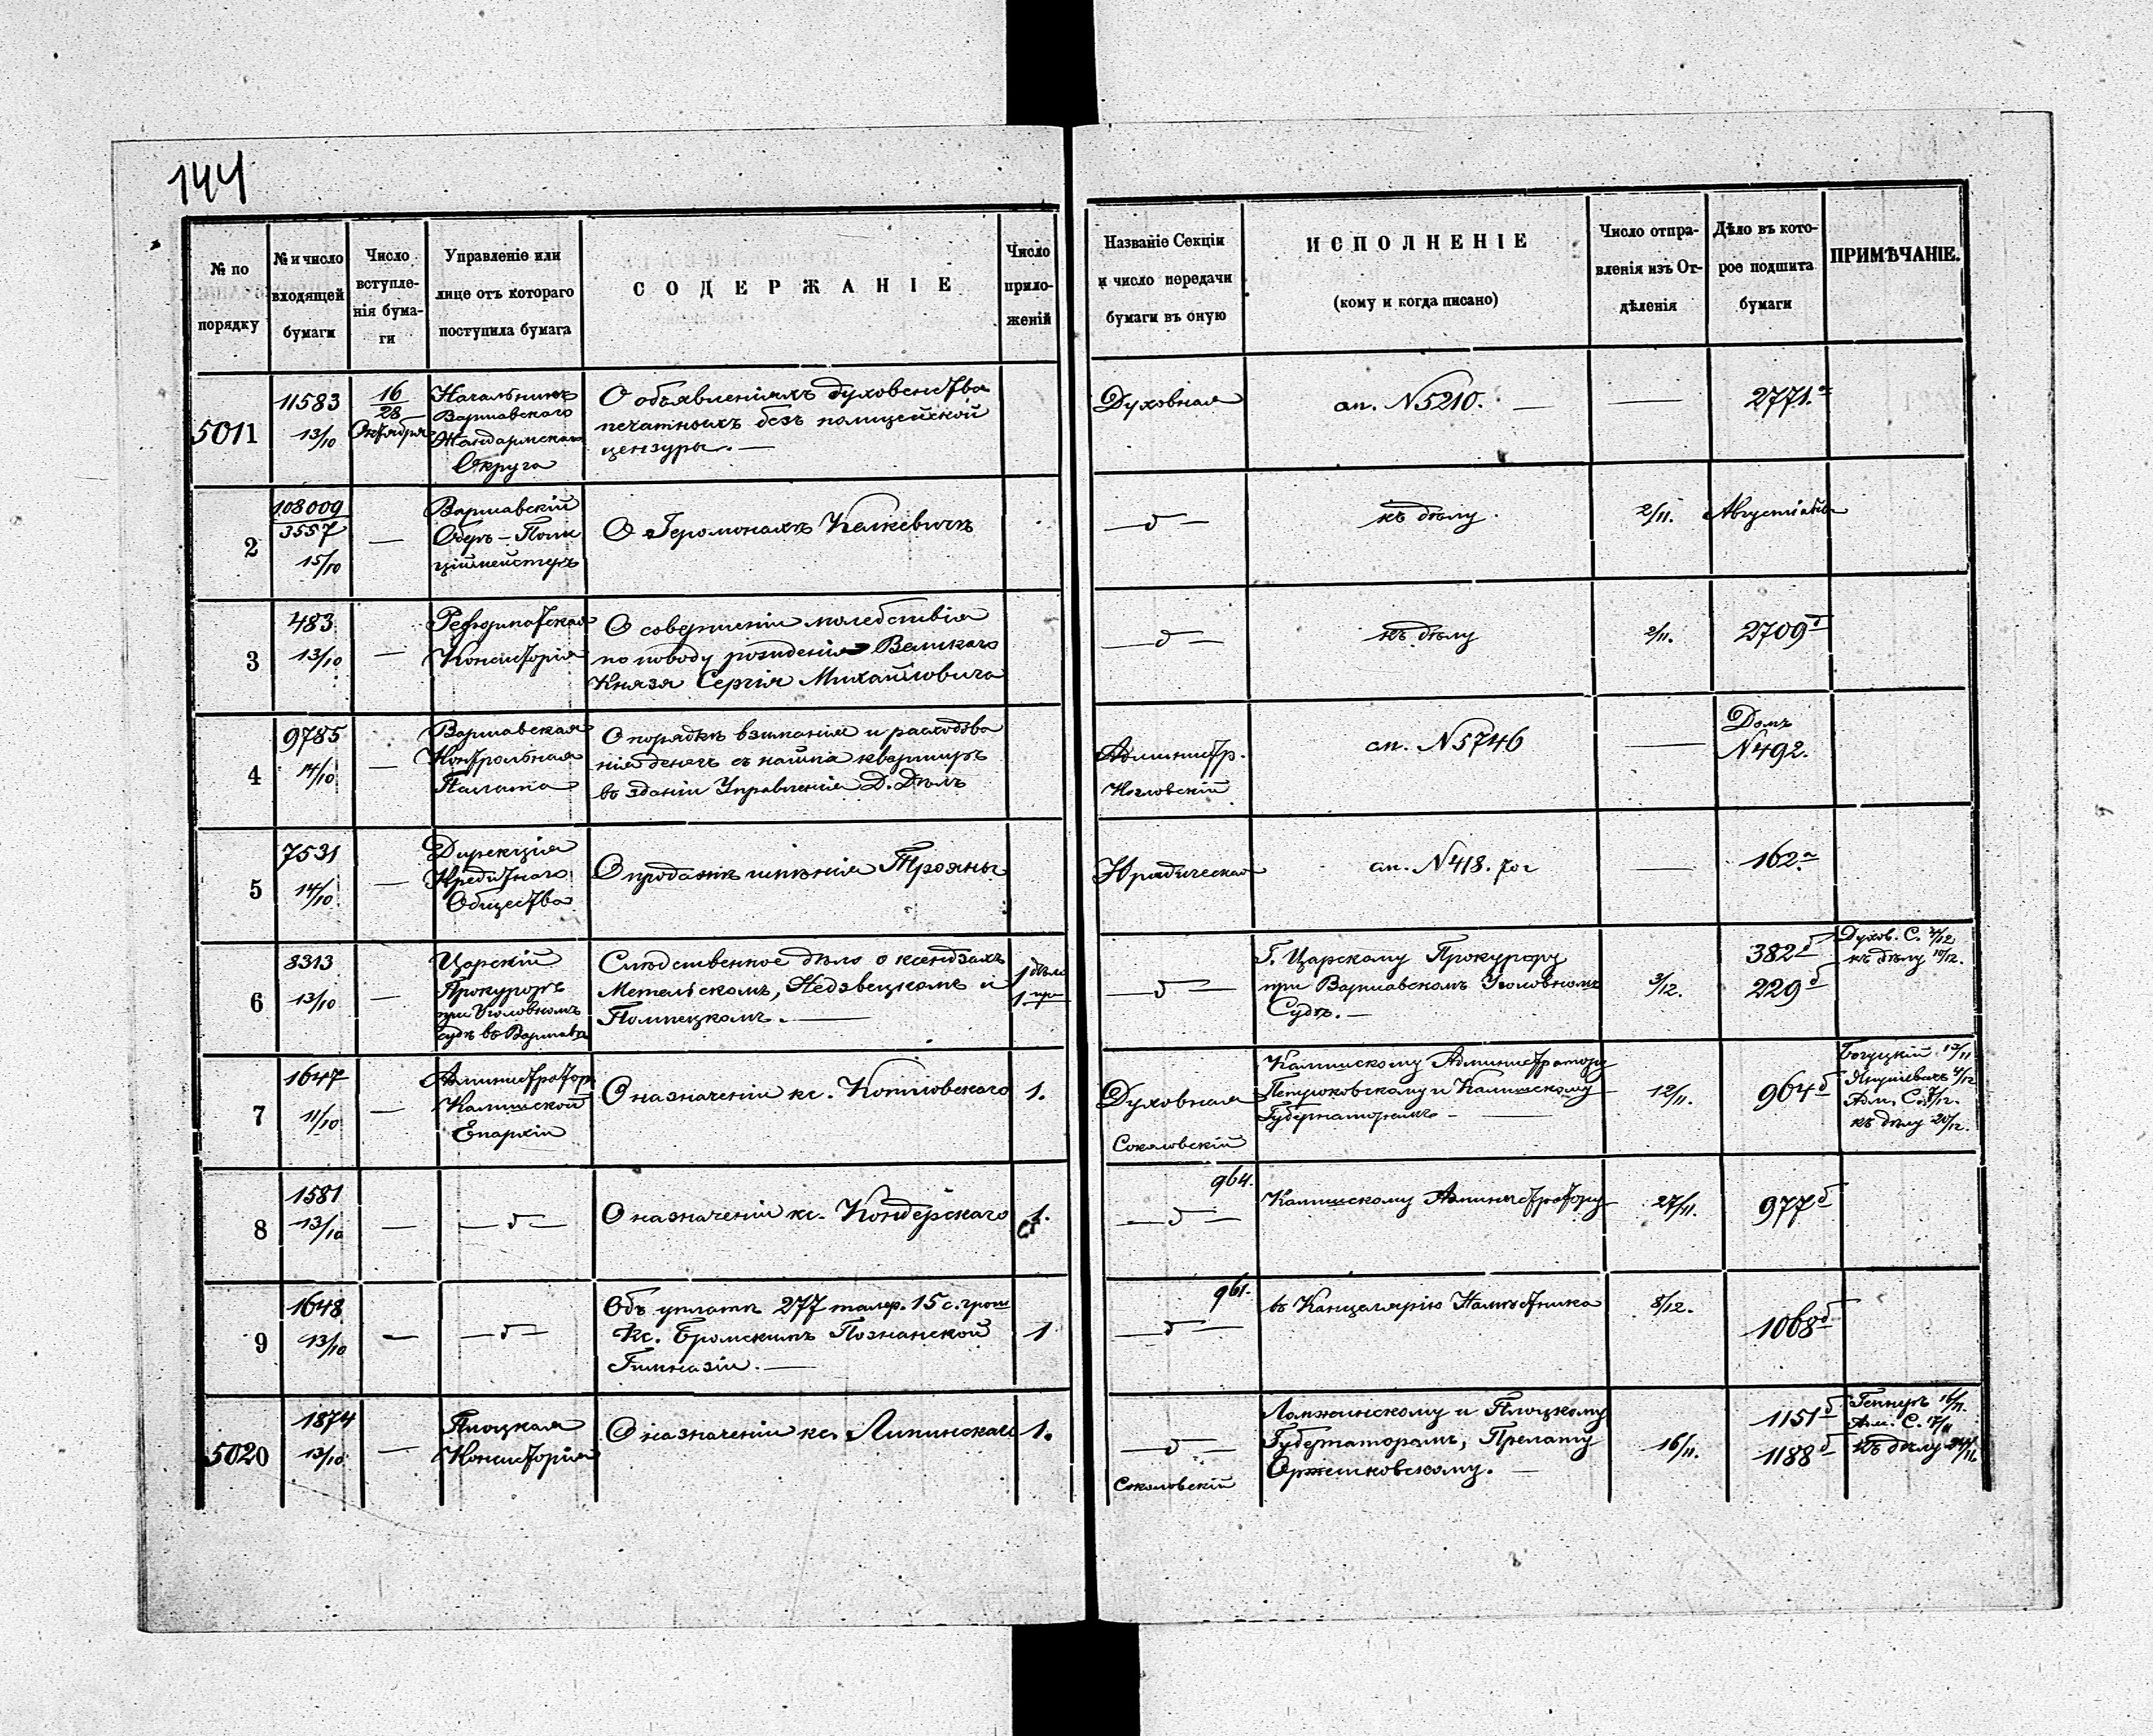 144
№ по порядку
№ и число входящей бумаги
Число вступленія бумаги
Управленіе или лице отъ котораго поступила бумага
СОДЕРЖАНІЕ
Число приложеній
Названіе Секціи и число передачи бумаги въ оную
ИСПОЛНЕНІЕ
(кому и когда писано)
Число отправленія изъ Отдѣленія
Дѣло въ которое подшита бумаги
ПРИМѢЧАНІЕ.
5011
11583
13/10
16/28
Октября
Начальникъ
Варшавскаго
Жандармскаго
Округа
О объявленіяхъ духовенства
печатныхъ безъ полицейской
цензуры. —
Духовная
сп. N5210. —
—
2771.а
2
108009
3557
15/10
—
Варшавскій
Оберъ-Поли
ціймейстеръ
О Іеромонахѣ
— δ —
къ дѣлу.
2/11.
3
483
13/10
—
Реформатская
Консисторія
О совершеніи молебствія
по поводу рожденія Великаго
Князя Сергія Михайловича
— δ —
къ дѣлу
2/11.
2709б
4
9785
14/10
—
Варшавская
Контрольная
Палата
О порядкѣ взиманія и расходова
нія денегъ съ найма квартиръ
въ зданіи Управленія Д. Дѣлъ
Администр.
Козловскій
сп. N5746
—
Домъ
N492.
5
7531
14/10
—
Дирекція
Кредитнаго
Общества
О продажѣ имѣнія Трояны
Юридическая
сп. N418.
—
162.а
6
8313
13/10
—
Царскій
Прокуроръ
при Уголовномъ
судѣ въ Варшавѣ
Слѣдственное дѣло о ксендзахъ
Метельскомъ, Недзвецкомъ и
—
1 дѣло
— δ —
Г. Царскому Прокурору
при Варшавскомъ Уголовномъ
Судѣ. —
3/12.
382б
229б
Духов. С. 4/12
къ дѣлу 10/12.
7
1647
11/10
—
Администраторъ
Калишской
Епархіи
О назначеніи кс. Котловскаго
1.
Духовная
Соколовскій
Калишскому Администратору
Петроковскому и Калишскому
Губернаторамъ. —
12/11.
964б
Богуцкій 13/11
Адм. С. 7/12.
къ дѣлу 20/12.
8
1581
13/10
—
— δ —
О назначеніи кс. Кондерскаго
1.
964.
— δ —
Калишскому Администратору
27/11.
977б
9
1648
13/10
—
— δ —
Объ уплатѣ 277 талер. 15 с. грош
Кс. Бромскимъ Познанской
Гимназіи. —
1
961.
— δ —
въ Канцелярію Намѣстника
8/12.
1068б
5020
1874
13/10
—
Плоцкая
Консисторія
О назначеніи кс. Липинскаго
1.
— δ —
Соколовскій
Ломжинскому и Плоцкому
Губернаторамъ, Прелату
Оржешковскому. —
16/11.
1151б
1188б
16/11.
Адм. С. 17/11
къ дѣлу 24/11.